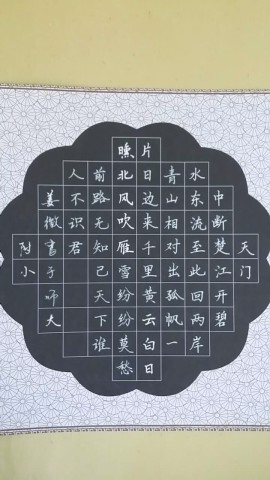 天门
中断楚江开碧
水东流至此回两岸
青山相对出孤帆一
片日边来千里黄云白日
曛北风吹雁雪纷纷莫愁
前路无知己天下谁
人不识君
姜微书子师大
附小